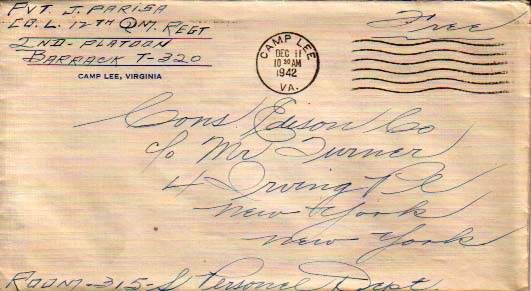 PVT. J. PARISA
CO. L. 12TH QM. REGT
2ND-PLATOON
BARRACK T-320
CAMP LEE, VIRGINIA
CAMP LEE
DEC 11
10 30 AM
1942
VA.
Free
Cons Edison Co
c/o Mr Turner
4 Irving Pl
New York
New York
ROOM-315-S Personel Dept.